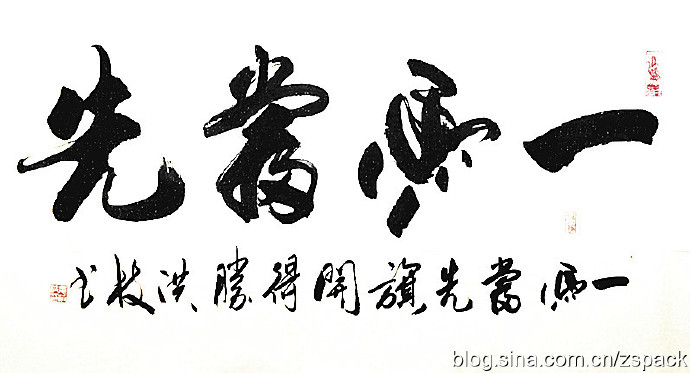 一馬當先
一馬當先旗開得勝洪枝书
blog.sina.com.cn/zspack